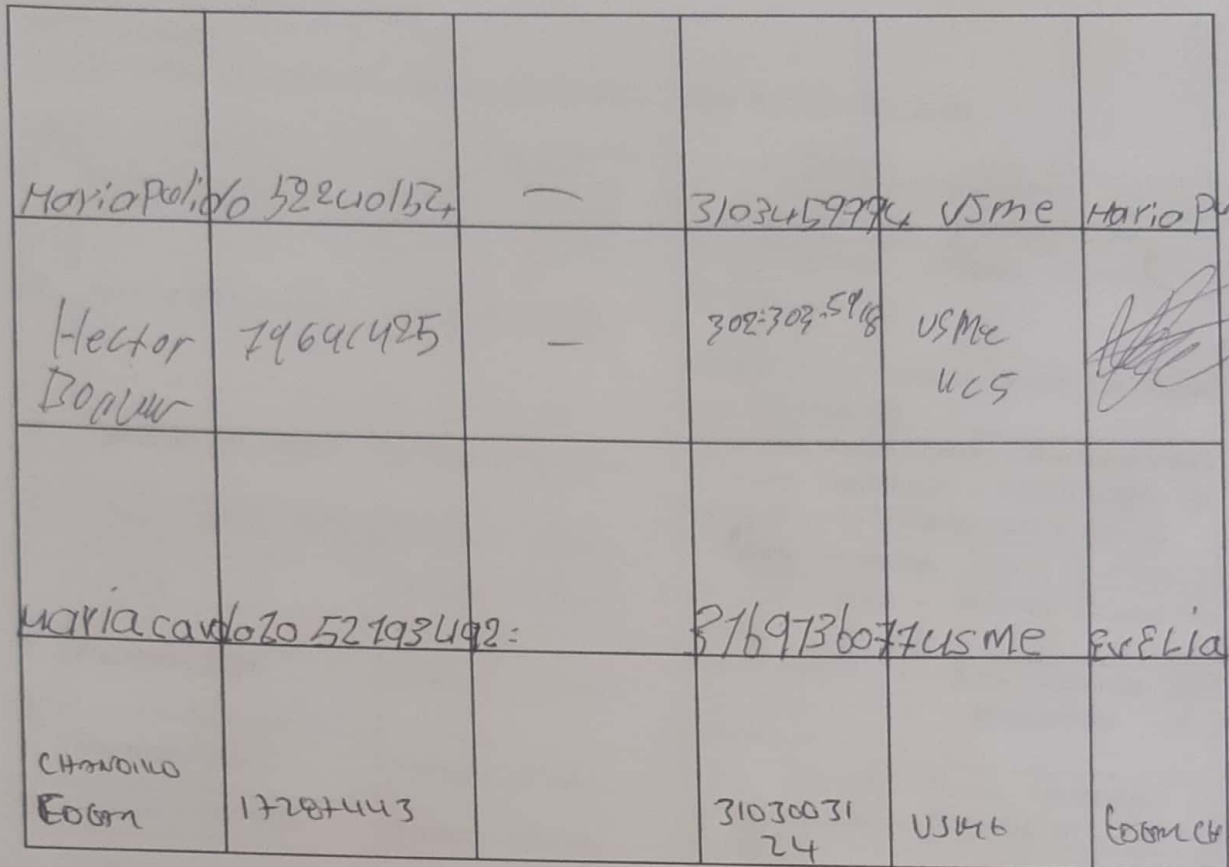 Maria Pulido 52240152 — 3103459794 Usme Maria P
Hector 79641425 — 302-303-5918 USMe
UCS
maria cardozo 52193492: 3169736077 usme EvELia
CHANDILLO
EDGAR 17287443 31030031 USME EDGAR CH
24